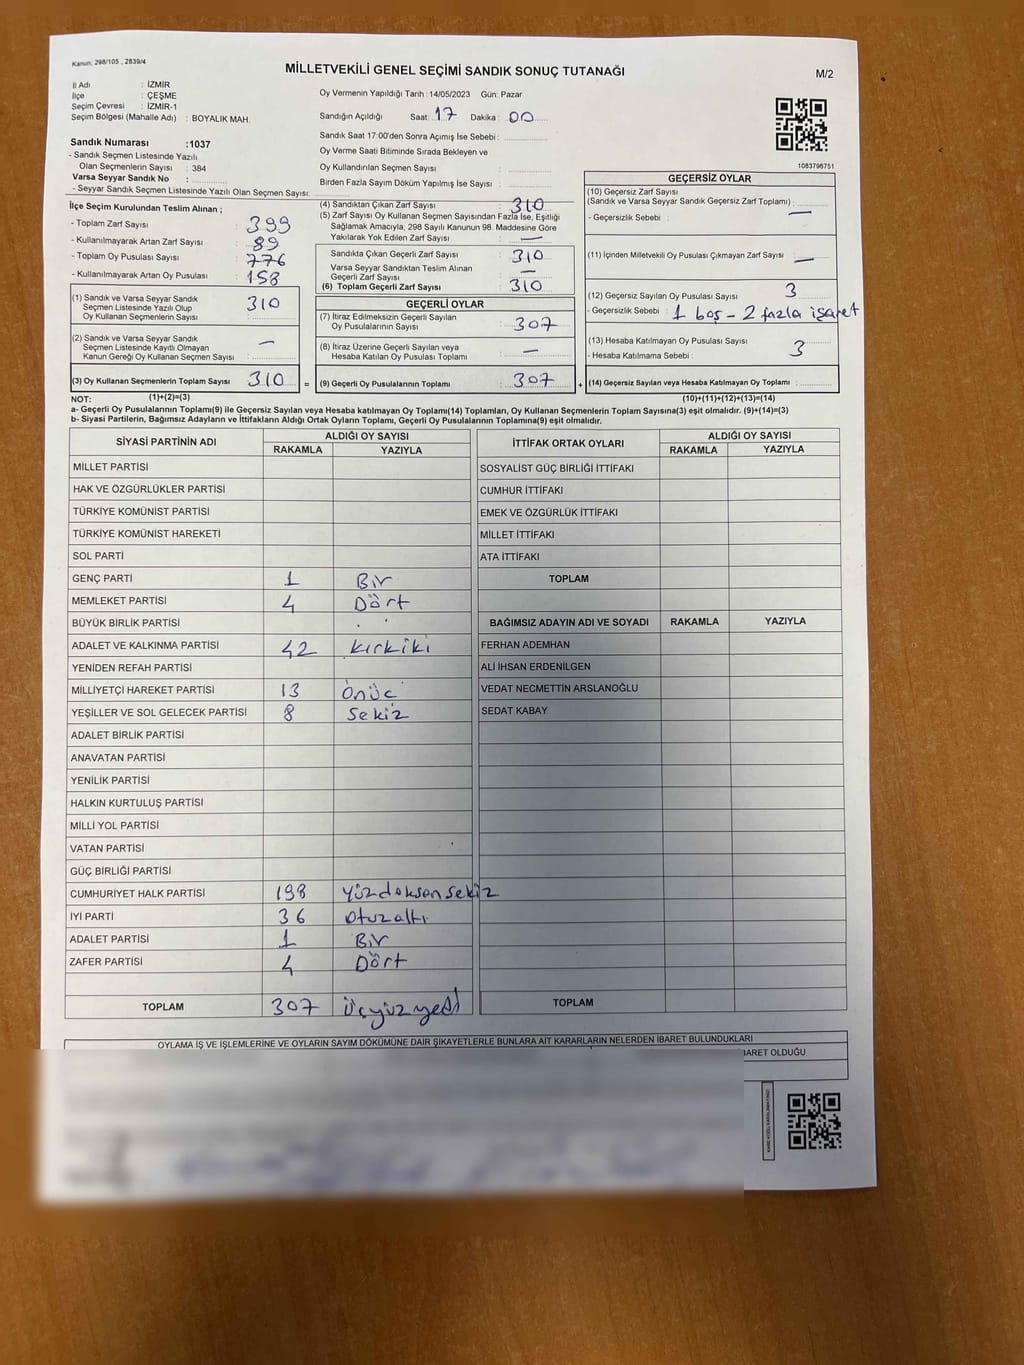 Kanun, 298/105 , 2839/4
MİLLETVEKİLİ GENEL SEÇİMİ SANDIK SONUÇ TUTANAĞI
M/2
İl Adı : İZMİR
İlçe : ÇEŞME
Seçim Çevresi : İZMİR-1
Seçim Bölgesi (Mahalle Adı) : BOYALIK MAH.
Oy Vermenin Yapıldığı Tarih : 14/05/2023 Gün: Pazar
Sandığın Açıldığı Saat: 17 Dakika : 00
Sandık Saat 17:00'den Sonra Açımış İse Sebebi :
Oy Verme Saati Bitiminde Sırada Bekleyen ve
Oy Kullandırılan Seçmen Sayısı :
Birden Fazla Sayım Döküm Yapılmış İse Sayısı :
1083796751
Sandık Numarası :1037
- Sandık Seçmen Listesinde Yazılı
Olan Seçmenlerin Sayısı : 384
Varsa Seyyar Sandık No :
- Seyyar Sandık Seçmen Listesinde Yazılı Olan Seçmen Sayısı:
İlçe Seçim Kurulundan Teslim Alınan ;
- Toplam Zarf Sayısı : 399
- Kullanılmayarak Artan Zarf Sayısı : 89
- Toplam Oy Pusulası Sayısı : 776
- Kullanılmayarak Artan Oy Pusulası : 158
(1) Sandık ve Varsa Seyyar Sandık
Seçmen Listesinde Yazılı Olup
Oy Kullanan Seçmenlerin Sayısı : 310
(2) Sandık ve Varsa Seyyar Sandık
Seçmen Listesinde Kayıtlı Olmayan
Kanun Gereği Oy Kullanan Seçmen Sayısı : —
(3) Oy Kullanan Seçmenlerin Toplam Sayısı 310 =
(4) Sandıktan Çıkan Zarf Sayısı : 310
(5) Zarf Sayısı Oy Kullanan Seçmen Sayısından Fazla İse, Eşitliği
Sağlamak Amacıyla; 298 Sayılı Kanunun 98. Maddesine Göre
Yakılarak Yok Edilen Zarf Sayısı : —
Sandıkta Çıkan Geçerli Zarf Sayısı : 310
Varsa Seyyar Sandıktan Teslim Alınan
Geçerli Zarf Sayısı : —
(6) Toplam Geçerli Zarf Sayısı : 310
GEÇERLİ OYLAR
(7) İtiraz Edilmeksizin Geçerli Sayılan
Oy Pusulalarının Sayısı : 307
(8) İtiraz Üzerine Geçerli Sayılan veya
Hesaba Katılan Oy Pusulası Toplamı : —
(9) Geçerli Oy Pusulalarının Toplamı : 307 +
GEÇERSİZ OYLAR
(10) Geçersiz Zarf Sayısı
(Sandık ve Varsa Seyyar Sandık Geçersiz Zarf Toplamı) :
- Geçersizlik Sebebi : —
(11) İçinden Milletvekili Oy Pusulası Çıkmayan Zarf Sayısı : —
(12) Geçersiz Sayılan Oy Pusulası Sayısı : 3
- Geçersizlik Sebebi : 1 boş - 2 fazla işaret
(13) Hesaba Katılmayan Oy Pusulası Sayısı :
- Hesaba Katılmama Sebebi : 3
(14) Geçersiz Sayılan veya Hesaba Katılmayan Oy Toplamı :
NOT: (1)+(2)=(3) (10)+(11)+(12)+(13)=(14)
a- Geçerli Oy Pusulalarının Toplamı(9) ile Geçersiz Sayılan veya Hesaba katılmayan Oy Toplamı(14) Toplamları, Oy Kullanan Seçmenlerin Toplam Sayısına(3) eşit olmalıdır. (9)+(14)=(3)
b- Siyasi Partilerin, Bağımsız Adayların ve İttifakların Aldığı Ortak Oyların Toplamı, Geçerli Oy Pusulalarının Toplamına(9) eşit olmalıdır.
SİYASİ PARTİNİN ADI ALDIĞI OY SAYISI
RAKAMLA YAZIYLA
MİLLET PARTİSİ
HAK VE ÖZGÜRLÜKLER PARTİSİ
TÜRKİYE KOMÜNİST PARTİSİ
TÜRKİYE KOMÜNİST HAREKETİ
SOL PARTİ
GENÇ PARTİ 1 Bir
MEMLEKET PARTİSİ 4 Dört
BÜYÜK BİRLİK PARTİSİ
ADALET VE KALKINMA PARTİSİ 42 kırkiki
YENİDEN REFAH PARTİSİ
MİLLİYETÇİ HAREKET PARTİSİ 13 Önüç
YEŞİLLER VE SOL GELECEK PARTİSİ 8 Sekiz
ADALET BİRLİK PARTİSİ
ANAVATAN PARTİSİ
YENİLİK PARTİSİ
HALKIN KURTULUŞ PARTİSİ
MİLLİ YOL PARTİSİ
VATAN PARTİSİ
GÜÇ BİRLİĞİ PARTİSİ
CUMHURİYET HALK PARTİSİ 198 Yüzdoksansekiz
İYİ PARTİ 36 Otuzaltı
ADALET PARTİSİ 1 Bir
ZAFER PARTİSİ 4 Dört
TOPLAM 307 Üçyüzyedi
İTTİFAK ORTAK OYLARI ALDIĞI OY SAYISI
RAKAMLA YAZIYLA
SOSYALIST GÜÇ BİRLİĞİ İTTİFAKI
CUMHUR İTTİFAKI
EMEK VE ÖZGÜRLÜK İTTİFAKI
MİLLET İTTİFAKI
ATA İTTİFAKI
TOPLAM
BAĞIMSIZ ADAYIN ADI VE SOYADI RAKAMLA YAZIYLA
FERHAN ADEMHAN
ALİ İHSAN ERDENİLGEN
VEDAT NECMETTİN ARSLANOĞLU
SEDAT KABAY
TOPLAM
OYLAMA İŞ VE İŞLEMLERİNE VE OYLARIN SAYIM DÖKÜMÜNE DAİR ŞİKAYETLERLE BUNLARA AİT KARARLARIN NELERDEN İBARET BULUNDUKLARI
BARET OLDUĞU